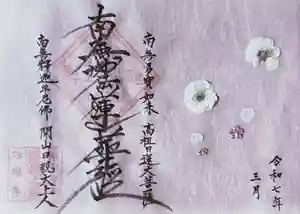 令和七年
三月
南無多寶如来 高祖日蓮大菩薩
南無妙法蓮華経
南無釋迦牟尼佛 開山 大上人